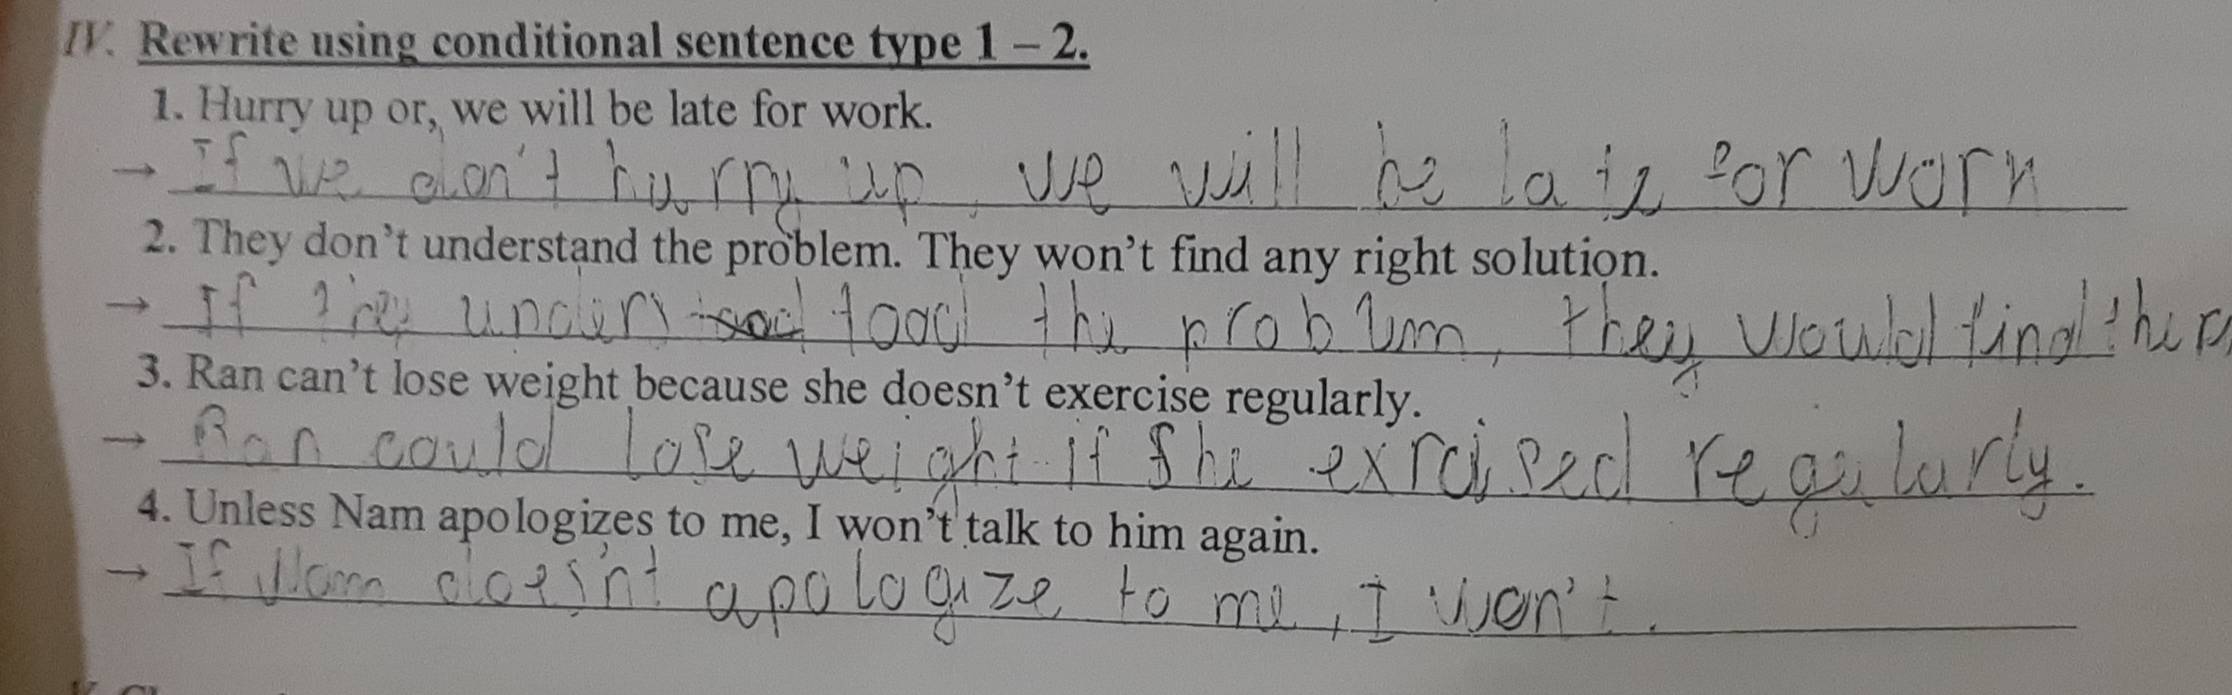 IV. Rewrite using conditional sentence type 1 – 2.
1. Hurry up or, we will be late for work.
→ If we don't hurry up, we will be late for work
2. They don't understand the problem. They won't find any right solution.
→ If they understood the problem, they would find
3. Ran can't lose weight because she doesn't exercise regularly.
→ Ran could lose weight if she exrcised regularly.
4. Unless Nam apologizes to me, I won't talk to him again.
→ If Nam doesn't apologize to me, I won't.